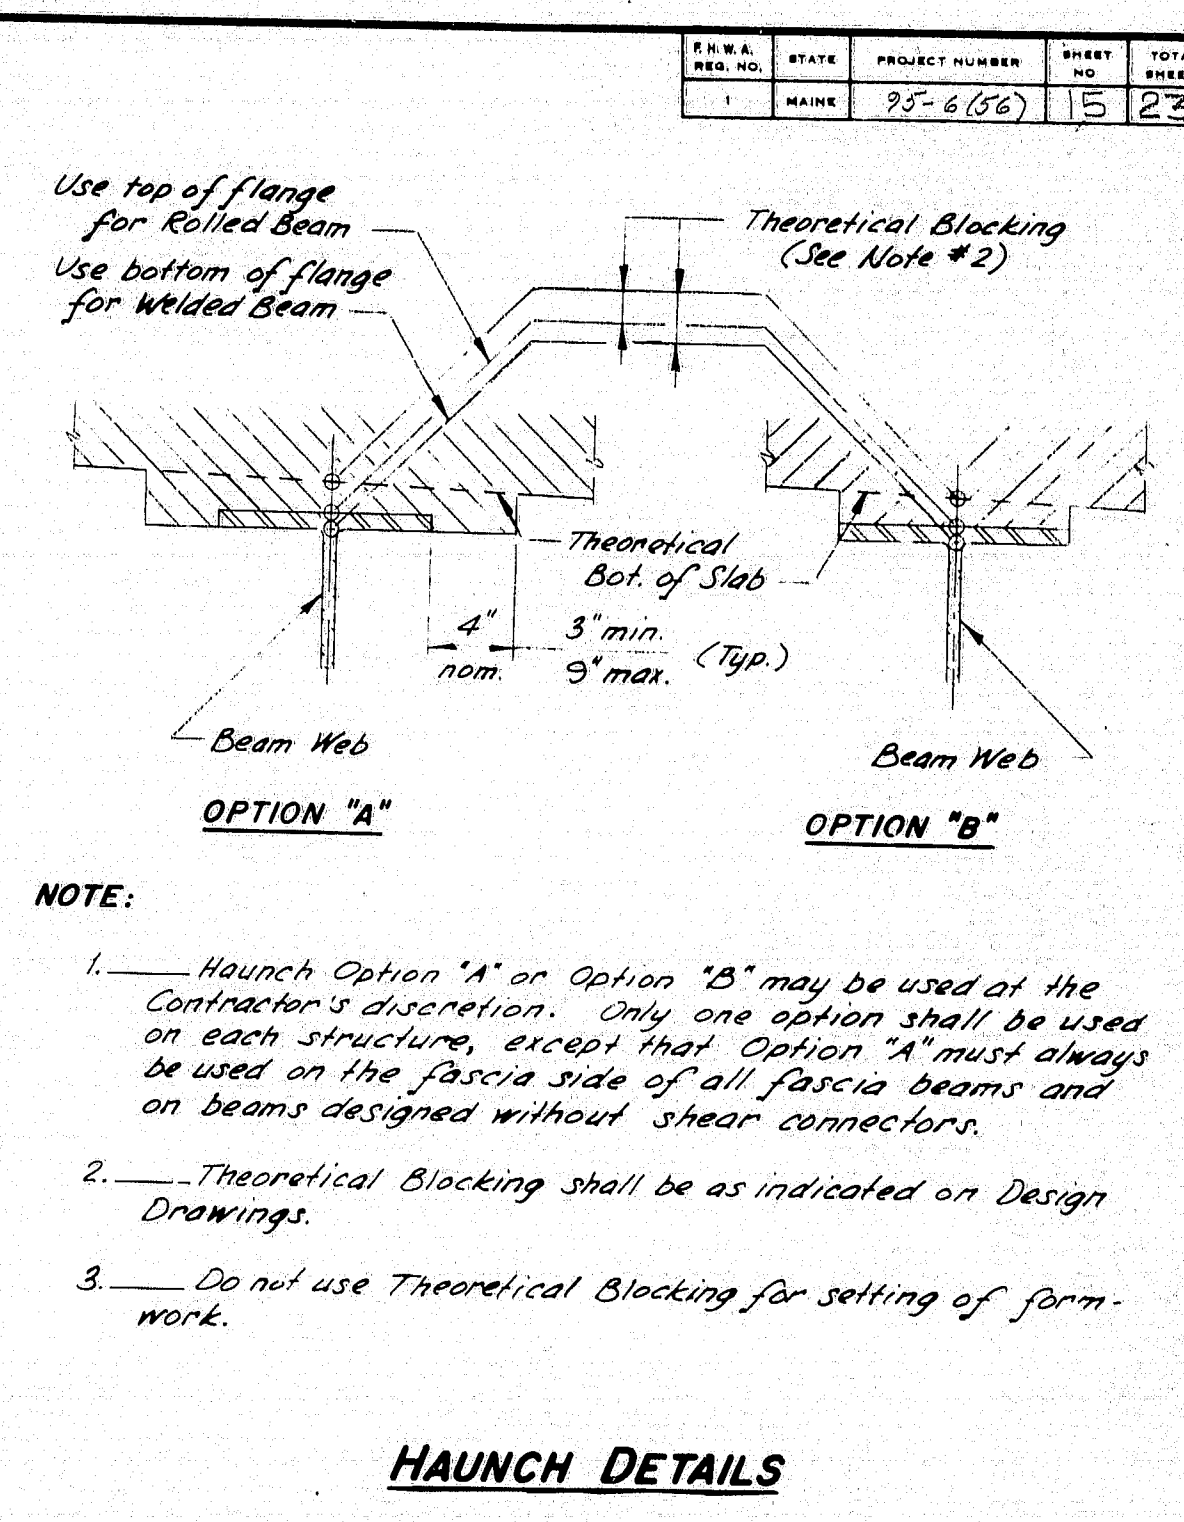 F. H. W. A. STATE PROJECT NUMBER SHEET
REG. NO. NO
1 MAINE 95-6(56) 15 23
Use top of flange
for Rolled Beam
Use bottom of flange
for Welded Beam
Theoretical Blocking
(See Note #2)
Theoretical
Bot. of Slab
4"
nom.
3" min.
9" max.
(Typ.)
Beam Web
Beam Web
OPTION "A"
OPTION "B"
NOTE:
1. Haunch Option "A" or Option "B" may be used at the
Contractor's discretion. Only one option shall be used
on each structure, except that Option "A" must always
be used on the fascia side of all fascia beams and
on beams designed without shear connectors.
2. Theoretical Blocking shall be as indicated on Design
Drawings.
3. Do not use Theoretical Blocking for setting of form-
work.
HAUNCH DETAILS